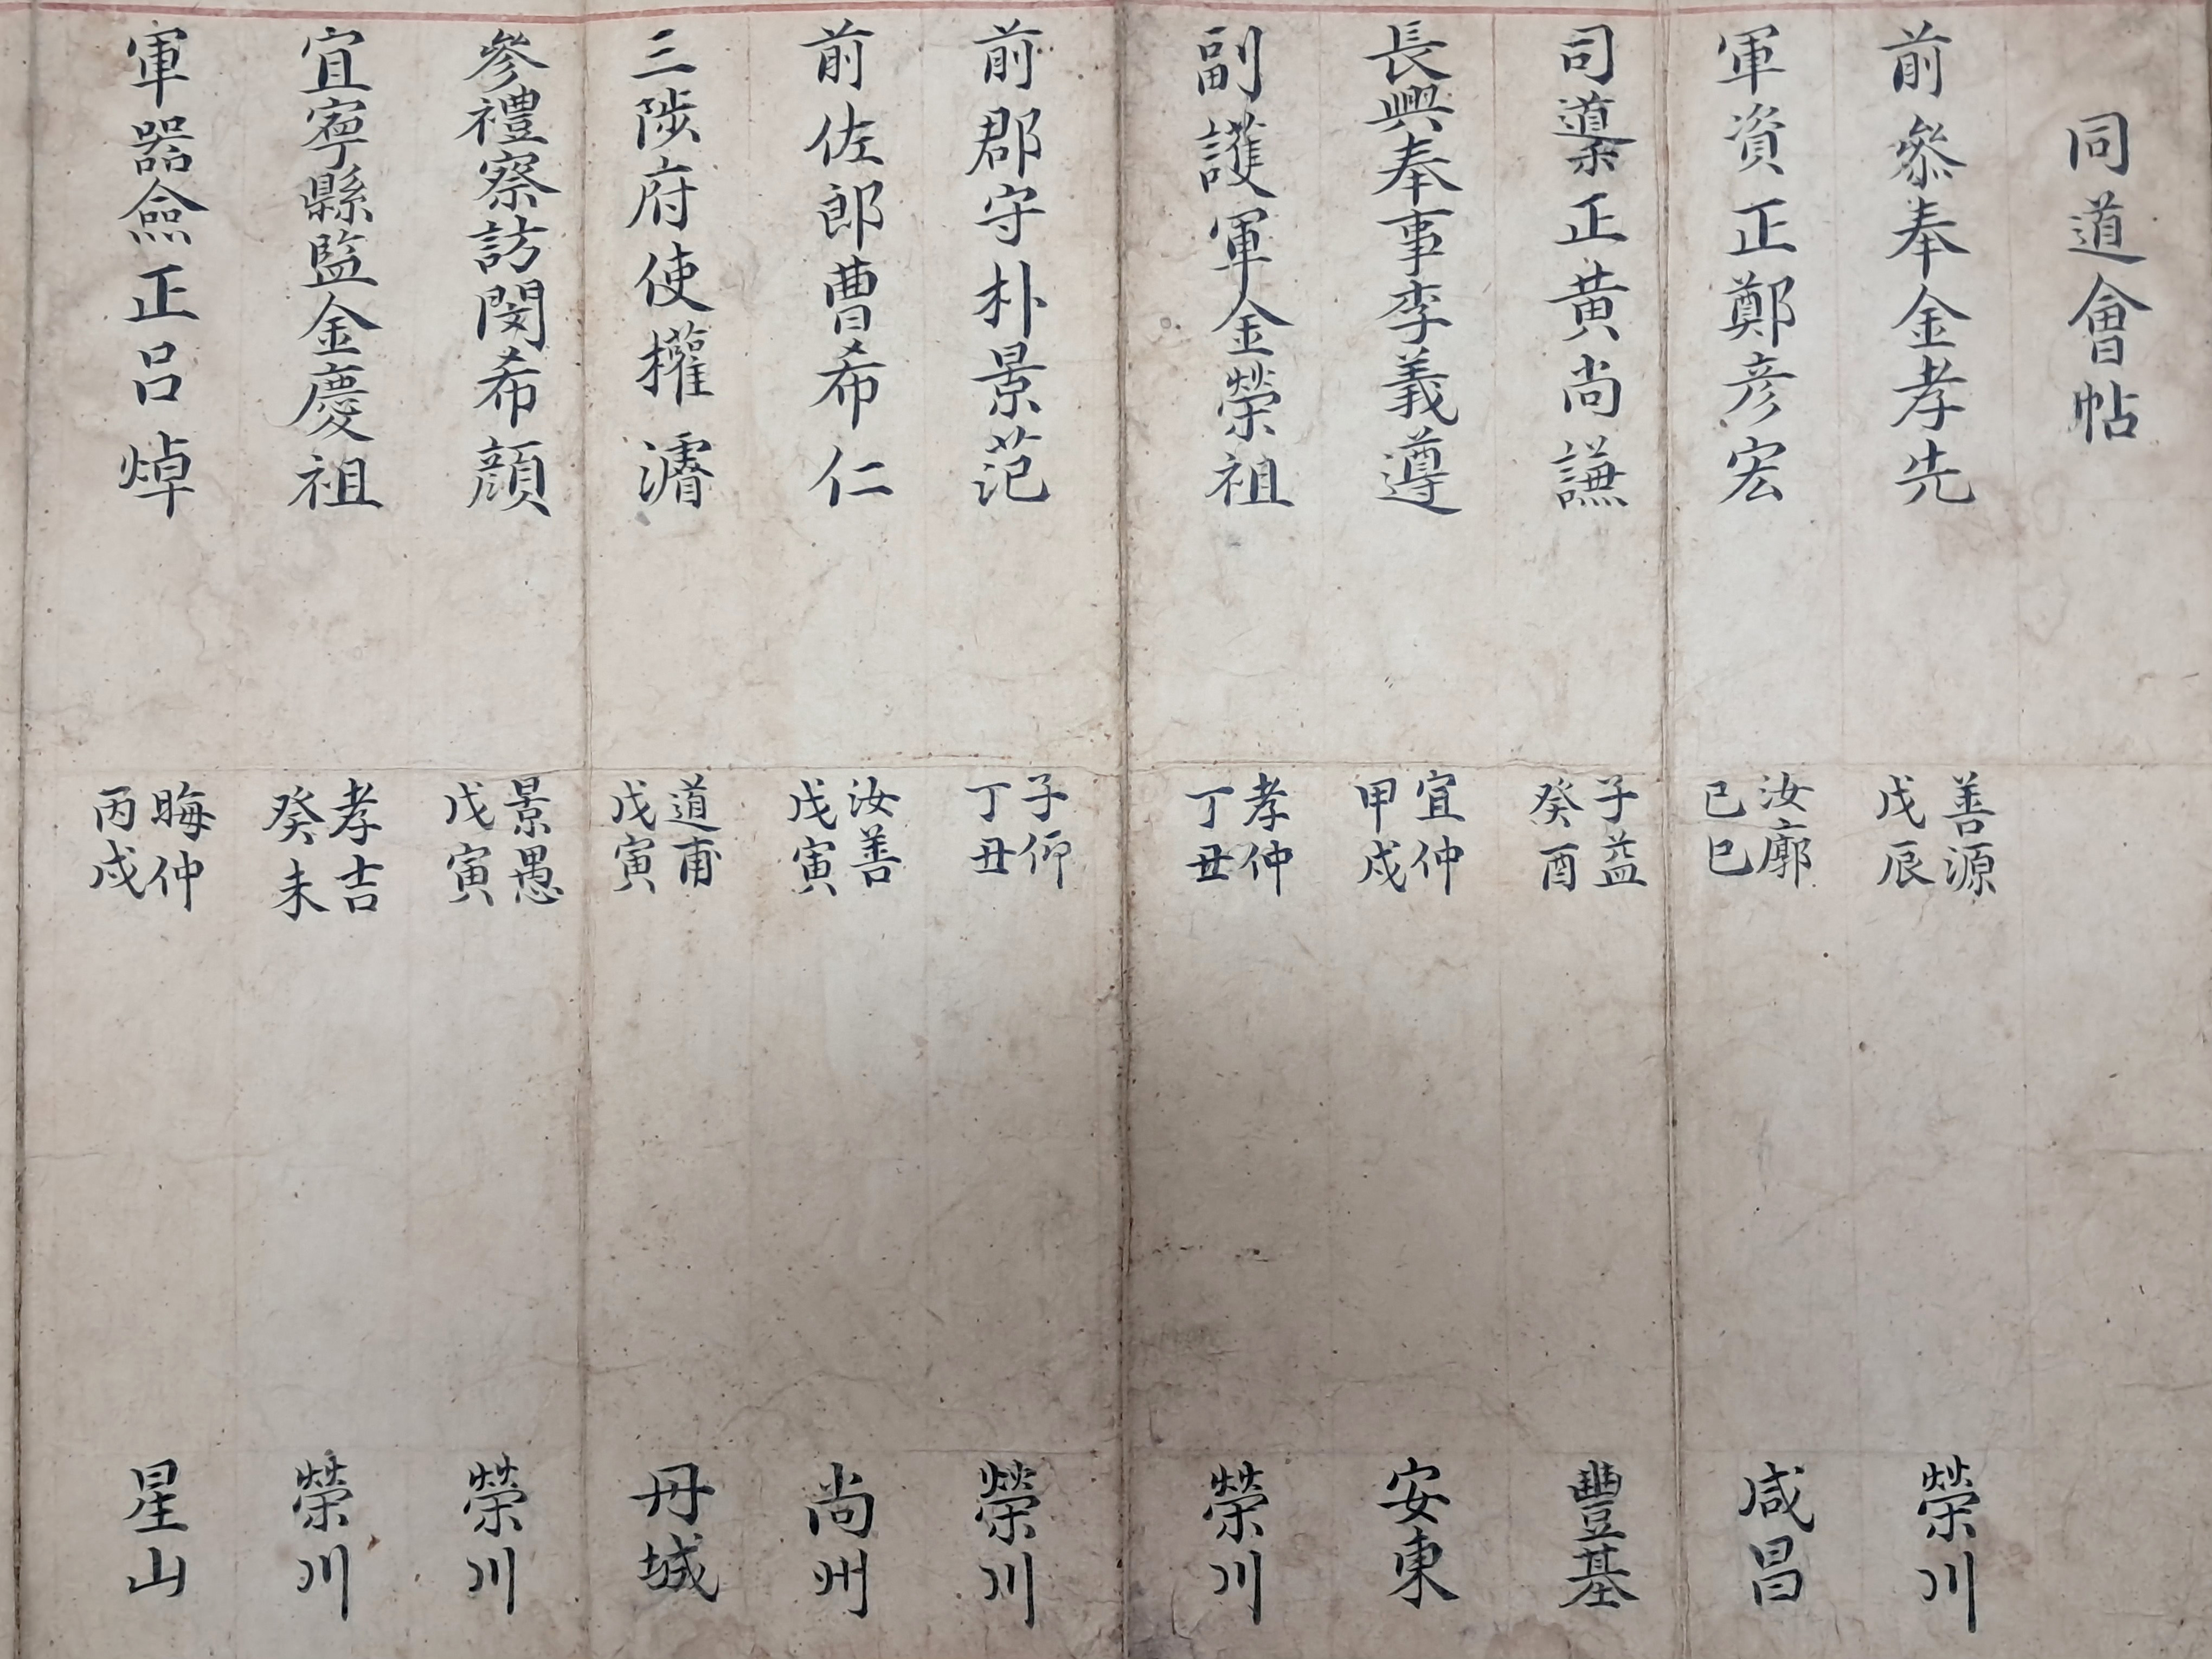 同道會帖
前叅奉金孝先
善源
戊辰
榮川
軍資正鄭彦宏
汝廓
己巳
咸昌
司䆃正黄尚謙
子益
癸酉
豐基
長興奉事李義遵
宜仲
甲戌
安東
副護軍金榮祖
孝仲
丁丑
榮川
前郡守朴景范
子仰
丁丑
榮川
前佐郎曹希仁
汝善
戊寅
尚州
三陟府使權濬
道甫
戊寅
丹城
參禮察訪閔希顔
景愚
戊寅
榮川
宜寧縣監金慶祖
孝吉
癸未
榮川
軍器僉正呂焯
晦仲
丙戌
星山